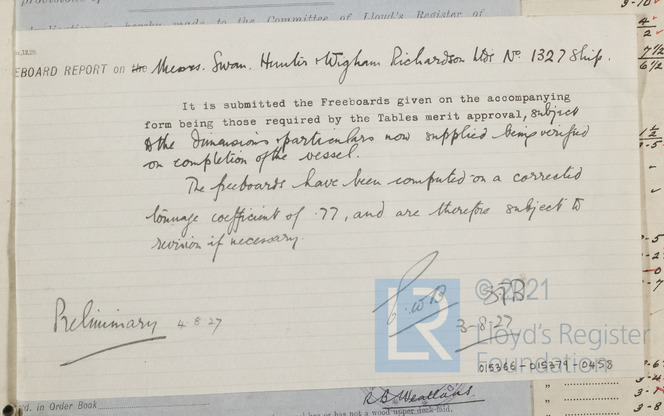 hereby made to the Committee of Lloyd's Register of
EBOARD REPORT on the Messrs. Swan. Hunter & Wigham Richardson Ltds No. 1327 Ship.
It is submitted the Freeboards given on the accompanying
form being those required by the Tables merit approval, subject
to the dimensions & particulars now supplied being verified
on completion of the vessel.
The freeboards have been computed on a corrected
tonnage coefficient of .77, and are therefore subject to
revision if necessary.
Preliminary 4-8-27
3-8-27
LR
© 2021
Lloyd's Register
Foundation
015366-015379-0458
d. in Order Book
or has not a wood upper deck-laid,